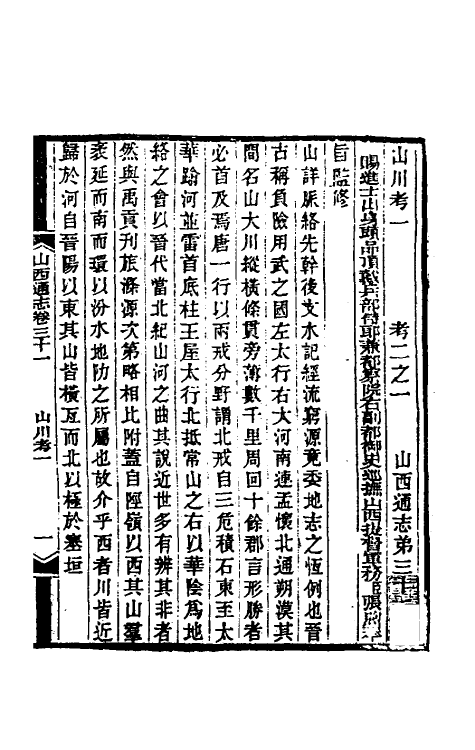 山川考一　考二之一　山西通志第三十一
賜進士出身頭品頂戴兵部侍郎兼都察院右副都御史巡撫山西提督軍務臣張
旨監修
山詳脈絡先幹後支水記經流窮源竟委地志之恆例也晉
古稱負險用武之國左太行右大河南連孟懷北通朔漠其
間名山大川縱橫條貫旁薄數千里周回十餘郡言形勝者
必首及焉唐一行以兩戒分野謂北戒自三危積石東至太
華踰河並雷首底柱王屋太行北抵常山之右以華陰爲地
絡之會以晉代當北紀山河之曲其說近世多有辨其非者
然與禹貢刊旅滌源次第略相比附蓋自陘嶺以西其山羣
袤延而南而環以汾水地阞之所屬也故介乎西者川皆近
歸於河自晉陽以東其山皆橫亙而北以極於塞垣
山西通志卷三十一　山川考一　一